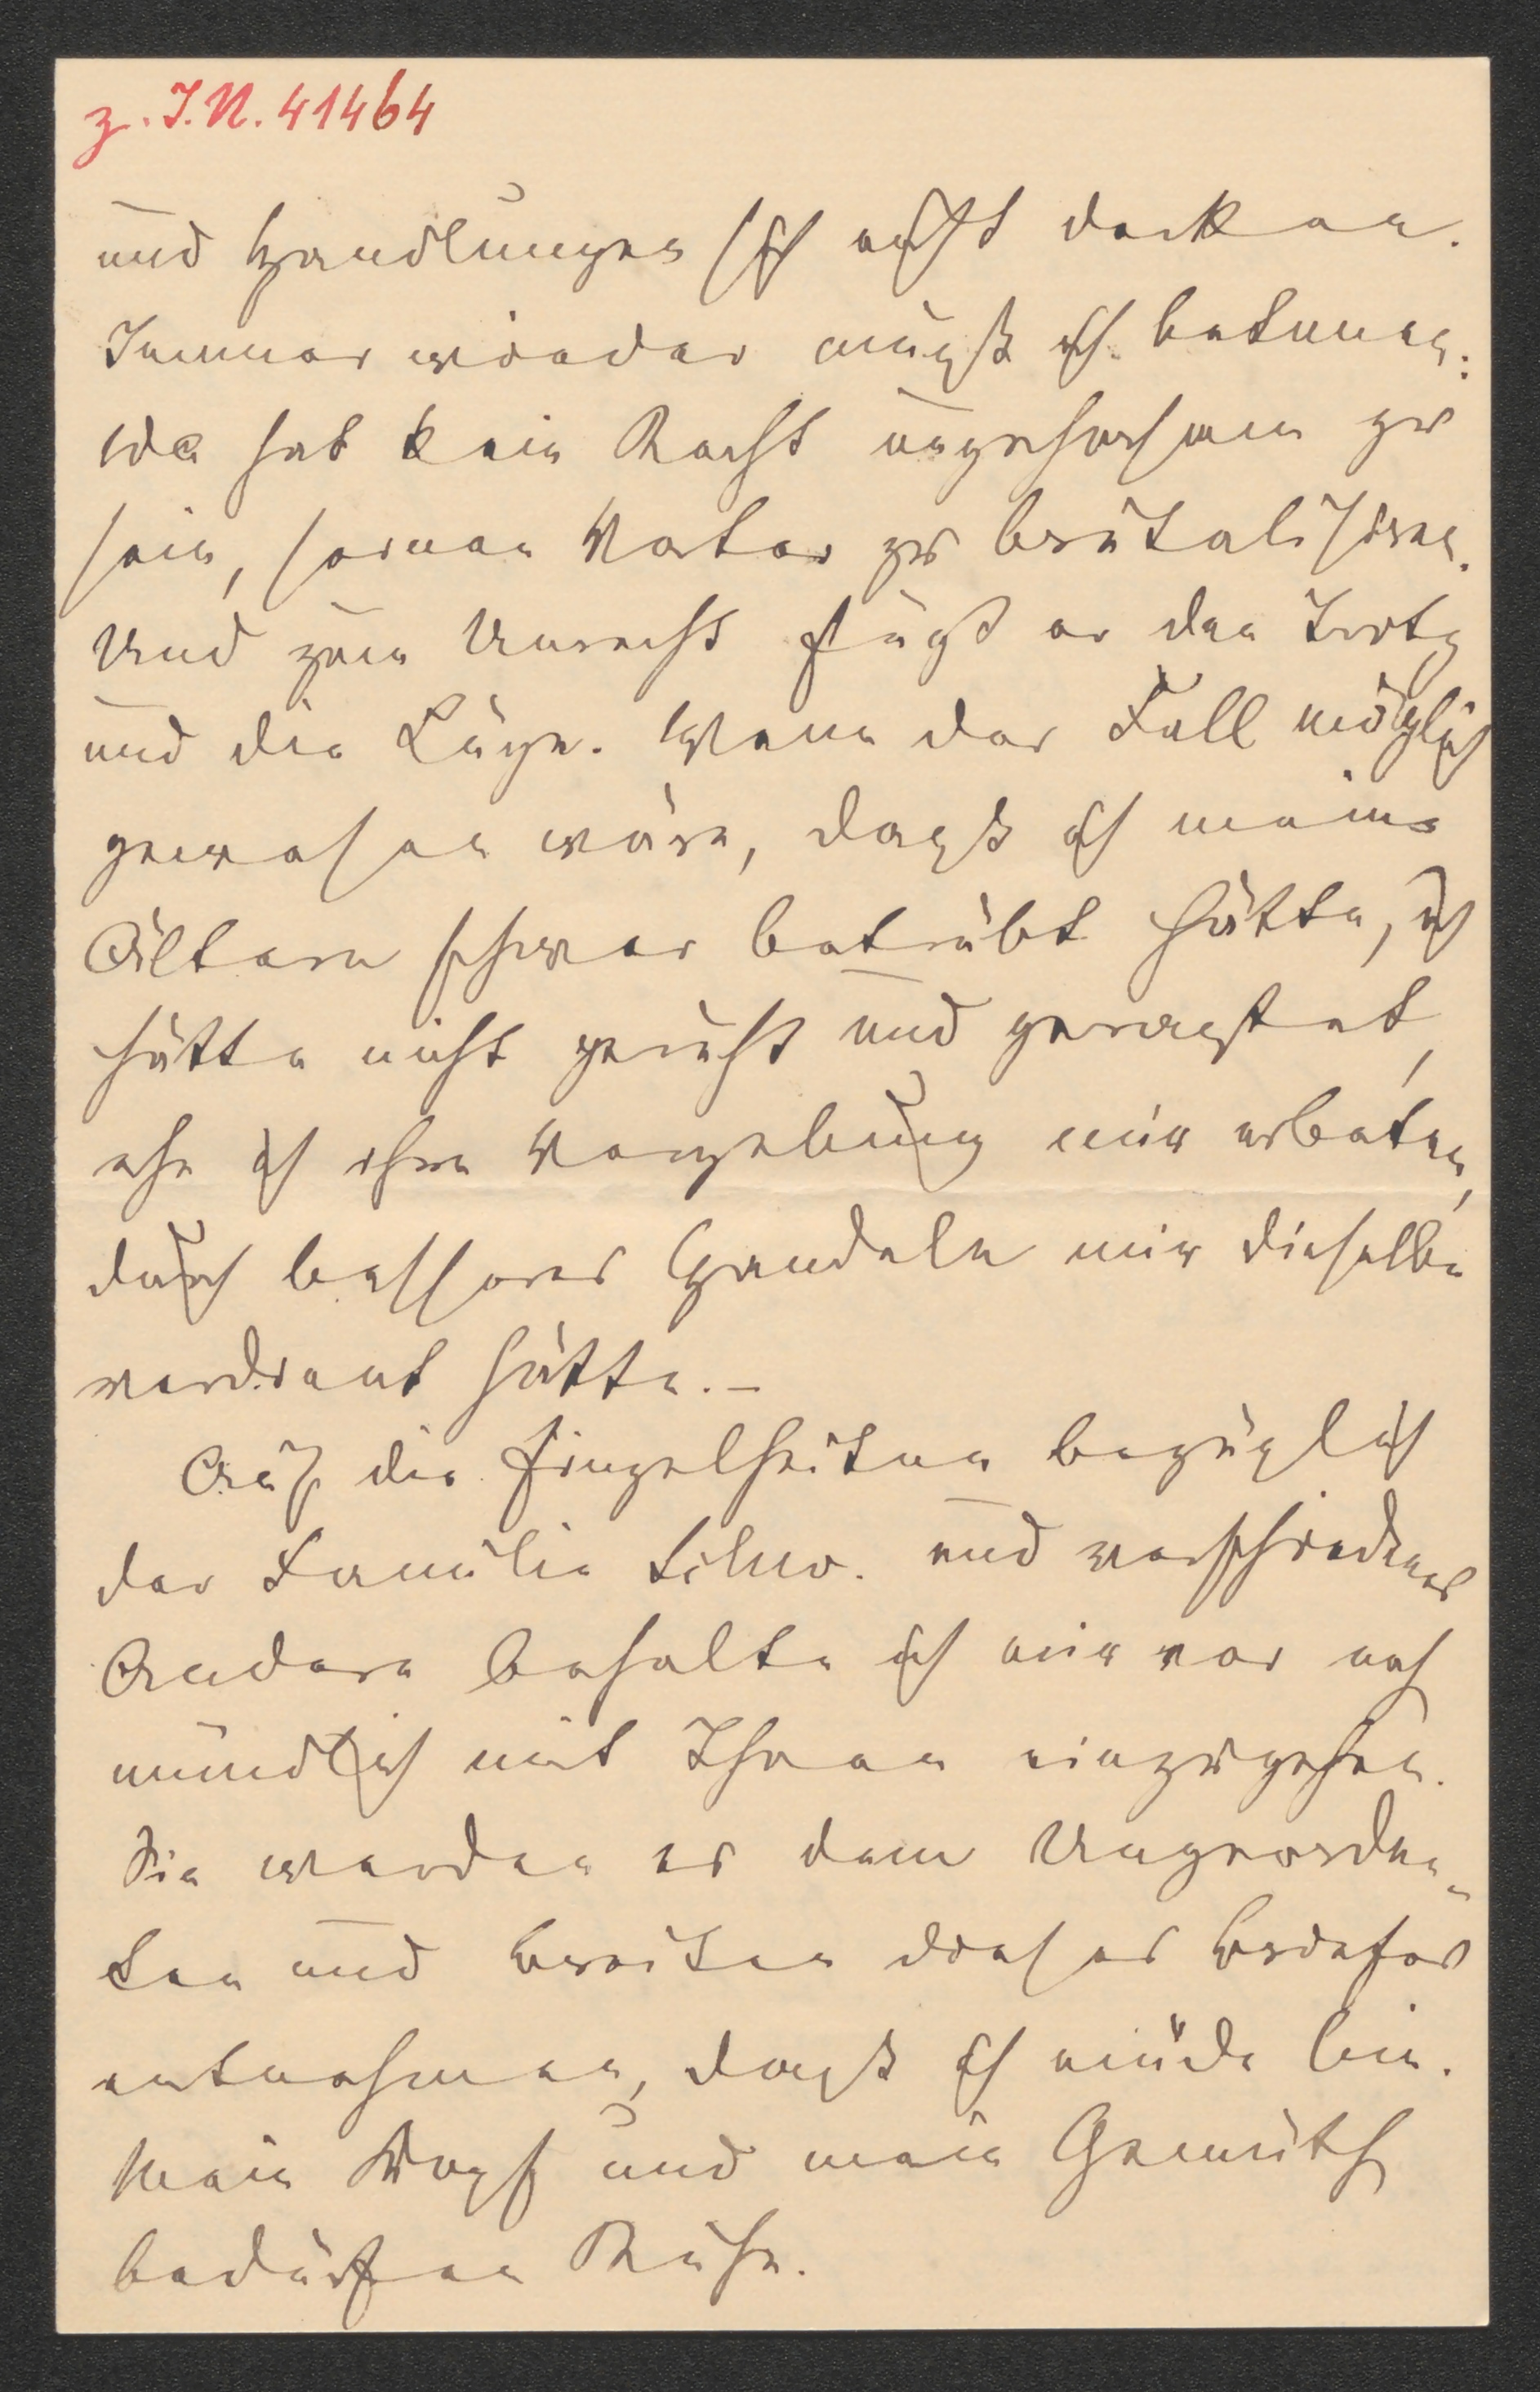 z. I.N. 41464
und Handlungen sich nicht decken.
Immer wieder muß ich betonen:
hat kein Recht ungehorsam zu
sein, seinen Vater zu brutalisiren.
Und zum Unrecht fügt er den Trotz
und die Lüge. Wenn der Fall möglich
gewesen wäre, daß ich meine
Ältern schwer betrübt hätte, ich
hätte nicht geruht und gerastet,
ehe ich ihre Vergebung mir erbeten,
durch besseres Handeln mir dieselbe
verdient hätte.–
Auf die Einzelheiten bezüglich
der Familie und verschiedenes
Andere behalte ich mir vor noch
mündlich mit Ihnen einzugehen.
Sie werden es dem Ungeordne-
ten und Breiten dieses Briefes
entnehmen, daß ich müde bin.
Mein Kopf und mein Gemüth
bedürfen Ruhe.